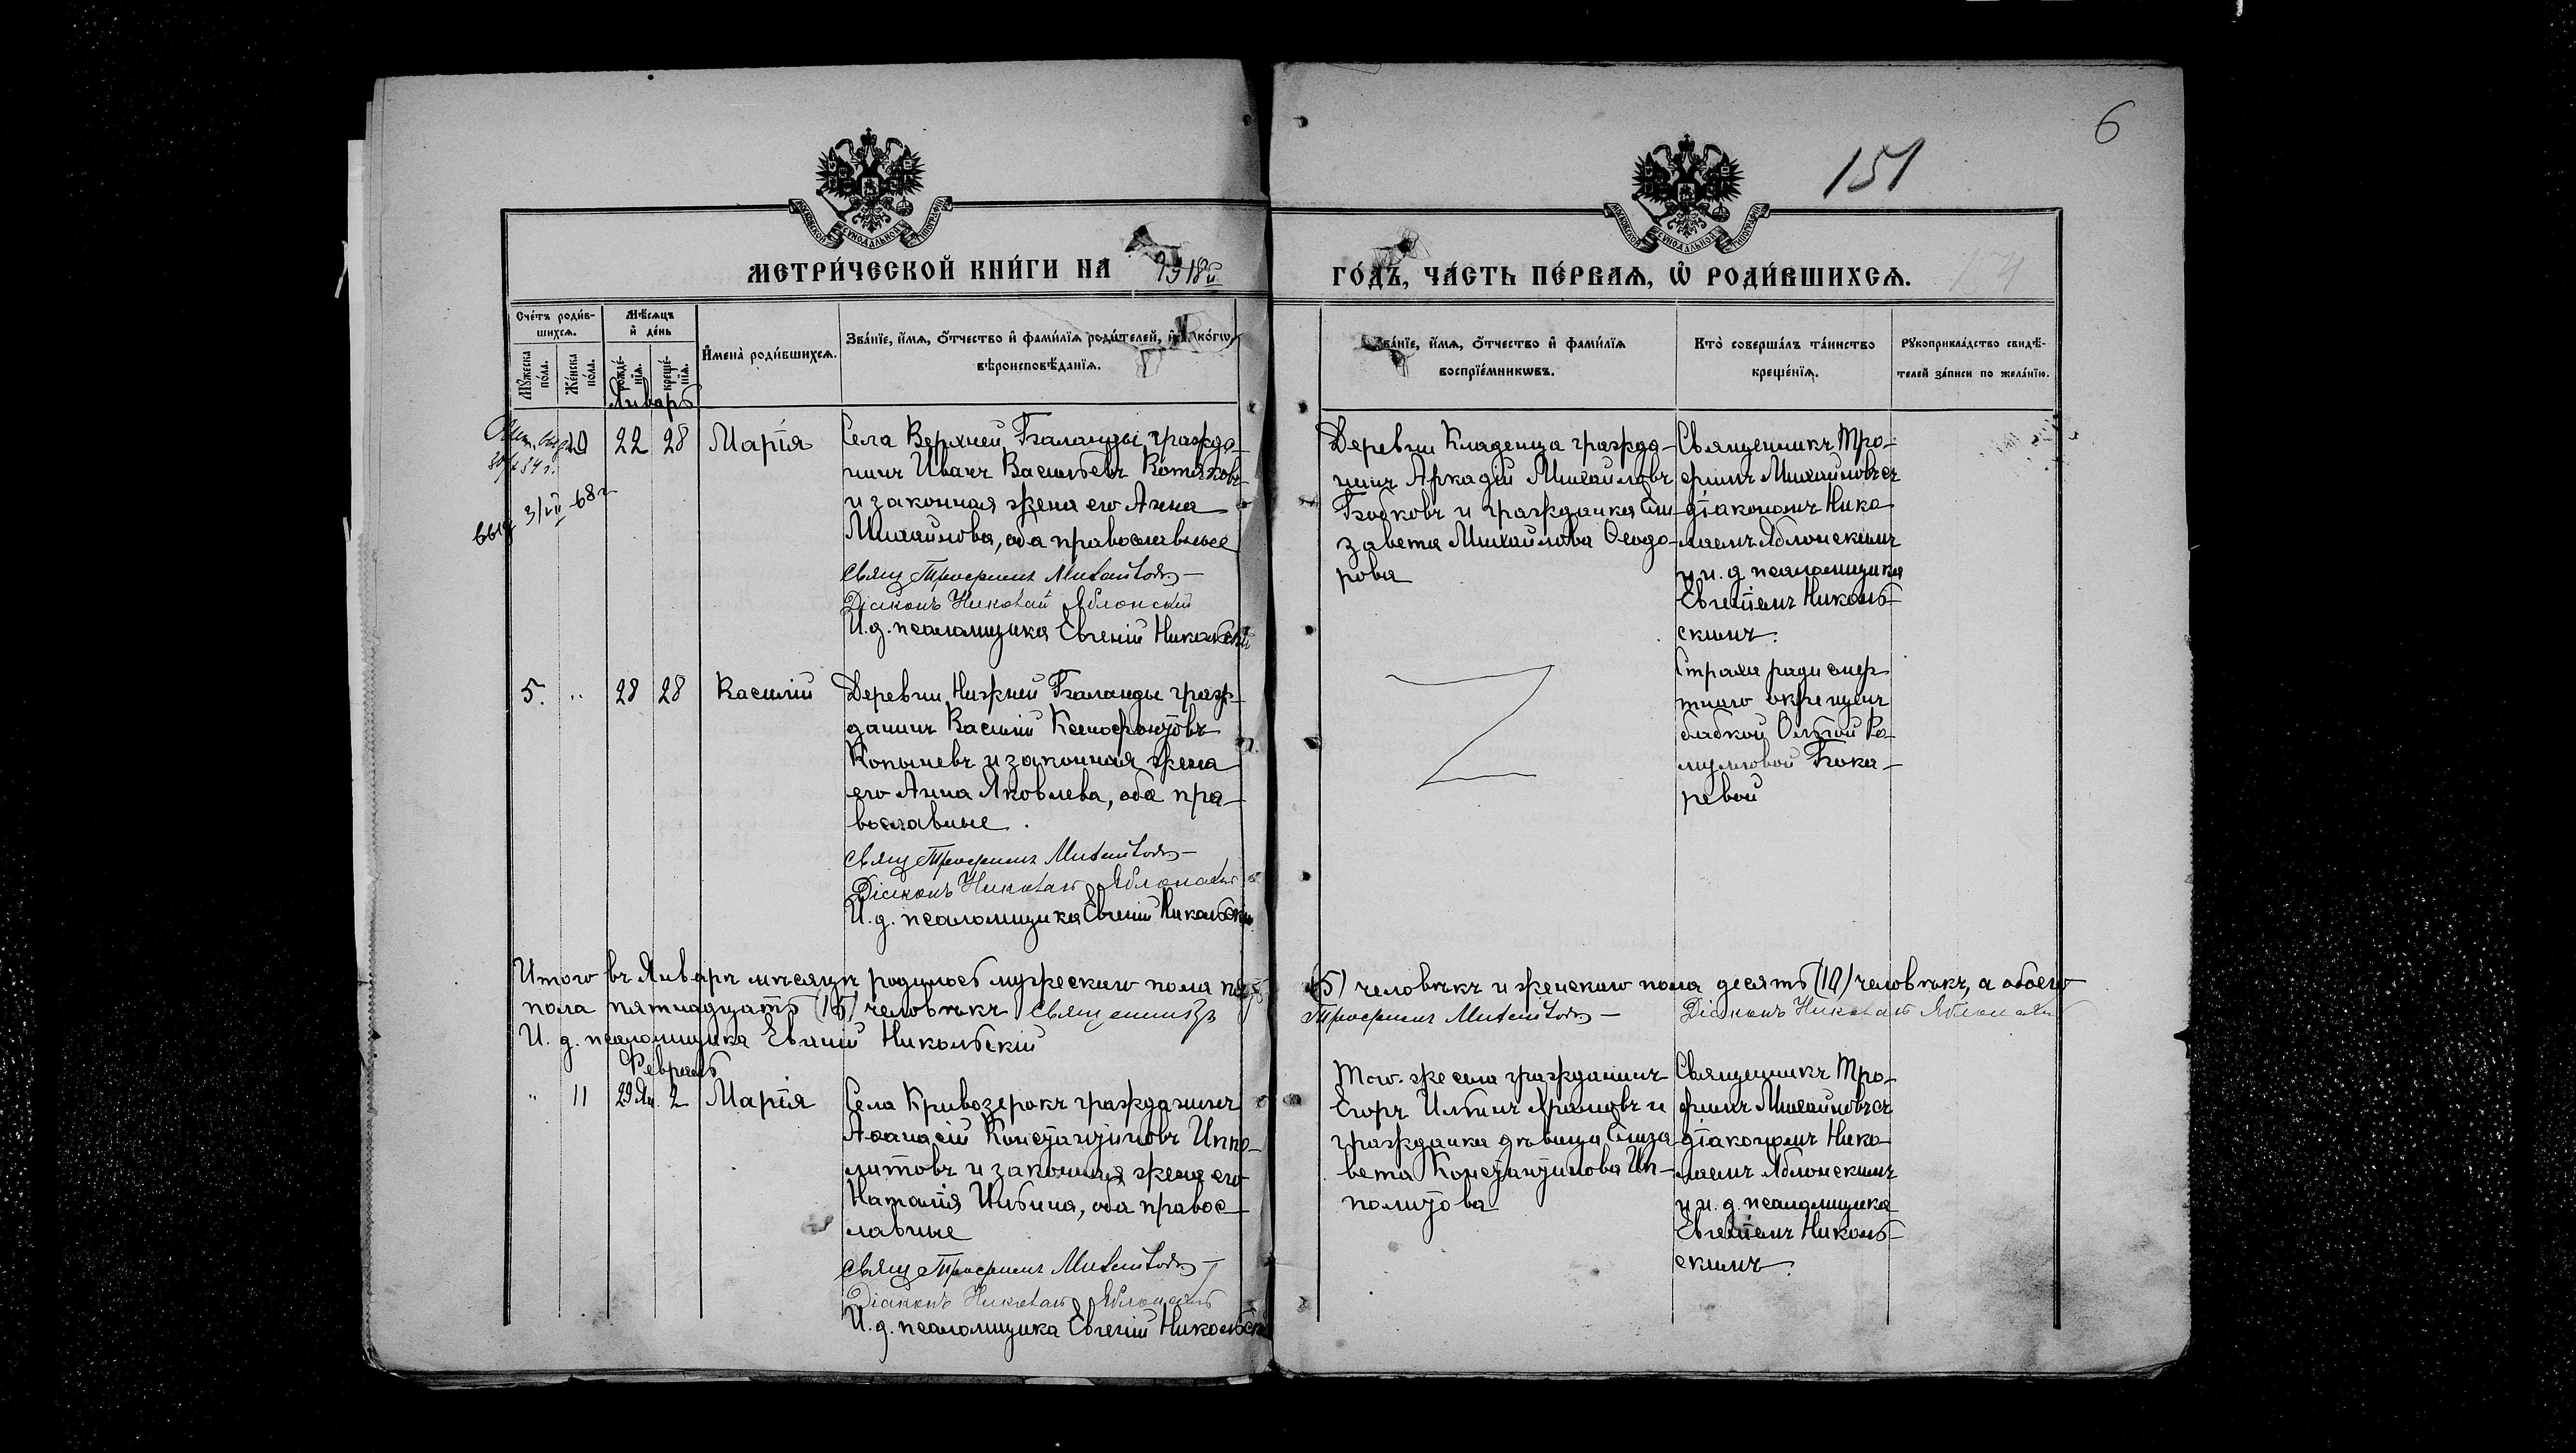 6
151
МОСКОВСКОЙ СУНОДАЛЬНОЙ ТИПОГРАФІИ
МОСКОВСКОЙ СУНОДАЛЬНОЙ ТИПОГРАФІИ
МЕТРИ́ЧЕСКОЙ КНИ́ГИ НА 1918й
ГО́ДЪ, ЧА́СТЬ ПЕ́РВАѦ, Ѡ҆ РОДИ́ВШИХСѦ.
Сче́тъ роди́в-
шихсѧ.
Мꙋ́жеска по́ла.
Же́нска по́ла.
Мѣ́сѧцъ
и҆ де́нь
рожде́-нїѧ.
креще́-нїѧ.
И҆мена̀ роди́вшихсѧ.
Зва́нїе, и҆́мѧ, ѻ҆́тчество и҆ фами́лїѧ роди́телей, и҆ како́гѡ
вѣроисповѣ́данїѧ.
Зва́нїе, и҆́мѧ, ѻ҆́тчество и҆ фами́лїѧ
воспрїе́мникѡвъ.
Кто̀ соверша́лъ та́инство
креще́нїѧ.
Рꙋкоприкла́дство свидѣ́-
телей за́писи по жела́нїю.
Январь
10 22 28 Марія
выд 3/VII-68г
Села Верхней Баланды гражда-
нинъ Иванъ Васильевъ Котяковъ
и законная жена его Анна
Михайлова, оба православные
Свящ Трофимъ Михайловъ
Діаконъ Николай Яблонскій
И.д. псаломщика Евгеній Никольскій
Деревни Кладенца гражда-
нинъ Аркадій Михайловъ
Бобковъ и гражданка Ели-
завета Михайлова Ѳеодо-
рова
Священникъ Тро-
фимъ Михайловъ съ
діакономъ Нико-
лаемъ Яблонскимъ
и и.д. псаломщика
Евгеніемъ Николь-
скимъ.
5. " 28 28 Василій
Деревни Нижней Баланды граж-
данинъ Василій Ксенофонтовъ
Копычевъ и законная жена
его Анна Яковлева, оба пра-
вославные.
Свящ Трофимъ Михайловъ
Діаконъ Николай Яблонскій
И.д. псаломщика Евгеній Никольскій
Страха ради смер-
тнаго окрещенъ
бабкой Ольгой Ро-
муловой Бока-
ревой
Итого въ Январѣ мѣсяцѣ родилось мужескаго пола пять (5) человѣкъ и женскаго пола десять (10) человѣкъ, а обоего
пола пятнадцать (15) человѣкъ Священникъ Трофимъ Михайловъ Діаконъ Николай Яблонскій
И. д. псаломщика Евгеній Никольскій
Февраль
" 11 29 Ян. 2 Марія
Села Кривозерокъ гражданинъ
Аѳанасій Константиновъ Иппо-
литовъ и законная жена его
Наталія Ильина, оба правос-
лавные
Свящ Трофимъ Михайловъ
Діаконъ Николай Яблонскій
И.д. псаломщика Евгеній Никольскій
Того-же села гражданинъ
Егоръ Ильинъ Храмовъ и
гражданка дѣвица Елиза-
вета Константинова Ип-
политова
Священникъ Тро-
фимъ Михайловъ съ
діакономъ Нико-
лаемъ Яблонскимъ
и и.д. псаломщика
Евгеніемъ Николь-
скимъ.